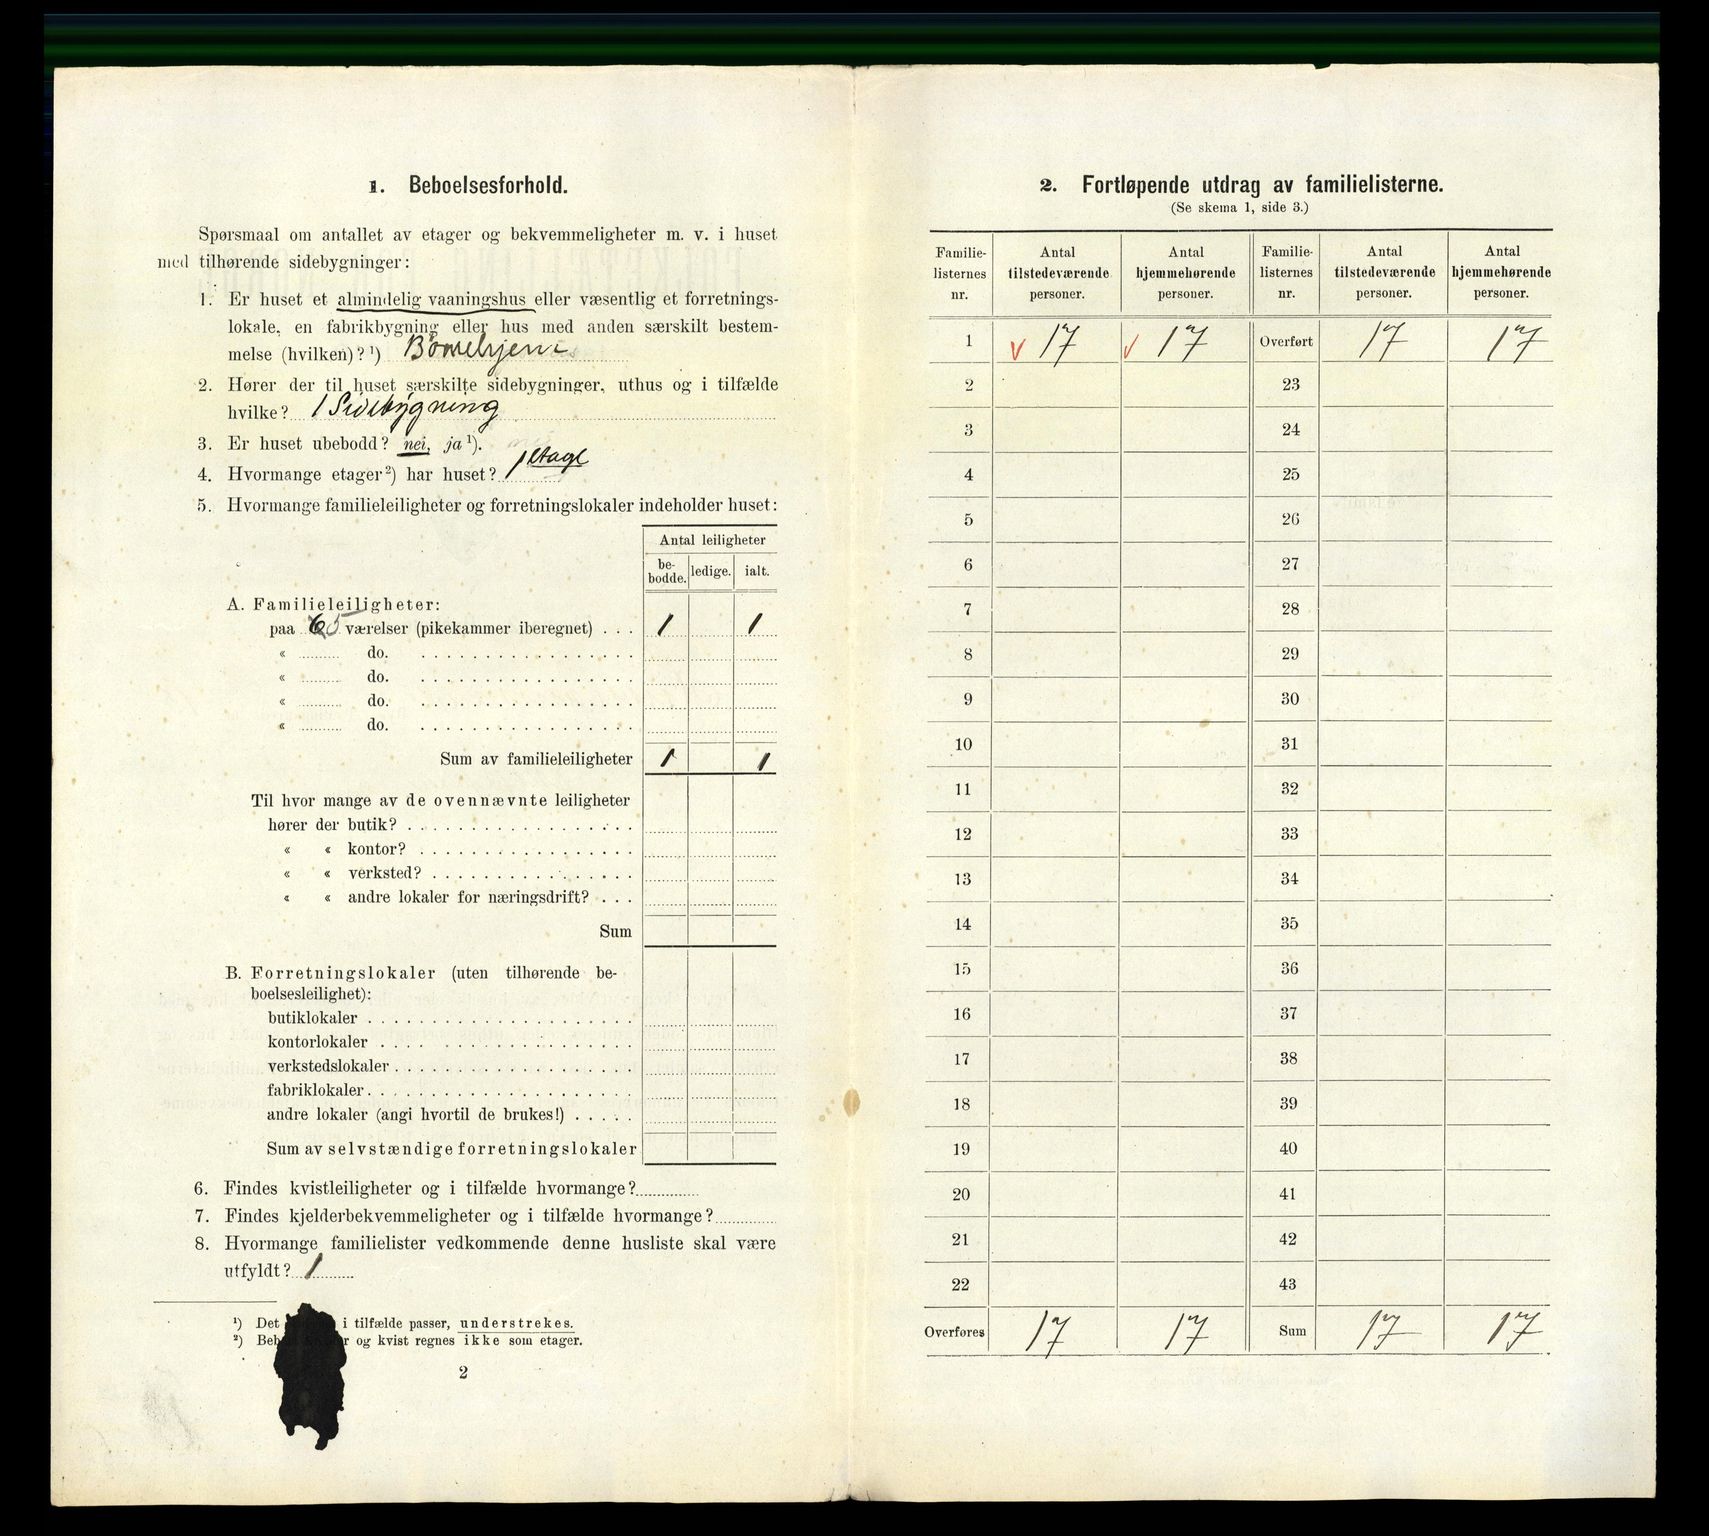 1. Beboelsesforhold.
Spørsmaal om antallet av etager og bekvemmeligheter m. v. i huset
med tilhørende sidebygninger:
1. Er huset et almindelig vaaningshus eller væsentlig et forretnings-
lokale, en fabrikbygning eller hus med anden særskilt bestem-
melse (hvilken)? ¹) Børnehjem
2. Hører der til huset særskilte sidebygninger, uthus og i tilfælde
hvilke? 1 Sidebygning
3. Er huset ubebodd? nei, ja ¹).
4. Hvormange etager ²) har huset? 1 etage
5. Hvormange familieleiligheter og forretningslokaler indeholder huset:
Antal leiligheter
be-
bodde. ledige. ialt.
A. Familieleiligheter:
paa 6 5 værelser (pikekammer iberegnet) . . . 1 1
« do.
« do.
« do.
« do.
Sum av familieleiligheter 1 1
Til hvor mange av de ovennævnte leiligheter
hører der butik?
« « kontor?
« « verksted?
« « andre lokaler for næringsdrift? . . .
Sum
B. Forretningslokaler (uten tilhørende be-
boelsesleilighet):
butiklokaler
kontorlokaler
verkstedslokaler
fabriklokaler
andre lokaler (angi hvortil de brukes!)
Sum av selvstændige forretningslokaler
6. Findes kvistleiligheter og i tilfælde hvormange?
7. Findes kjelderbekvemmeligheter og i tilfælde hvormange?
8. Hvormange familielister vedkommende denne husliste skal være
utfyldt? 1
¹) Det i tilfælde passer, understrekes.
²) og kvist regnes ikke som etager.
2
2. Fortløpende utdrag av familielisterne.
(Se skema 1, side 3.)
Familie-listernes nr. Antal tilstedeværende personer. Antal hjemmehørende personer. Familie-listernes nr. Antal tilstedeværende personer. Antal hjemmehørende personer.
1 v 17 v 17 Overført 17 17
2 23
3 24
4 25
5 26
6 27
7 28
8 29
9 30
10 31
11 32
12 33
13 34
14 35
15 36
16 37
17 38
18 39
19 40
20 41
21 42
22 43
Overføres 17 17 Sum 17 17